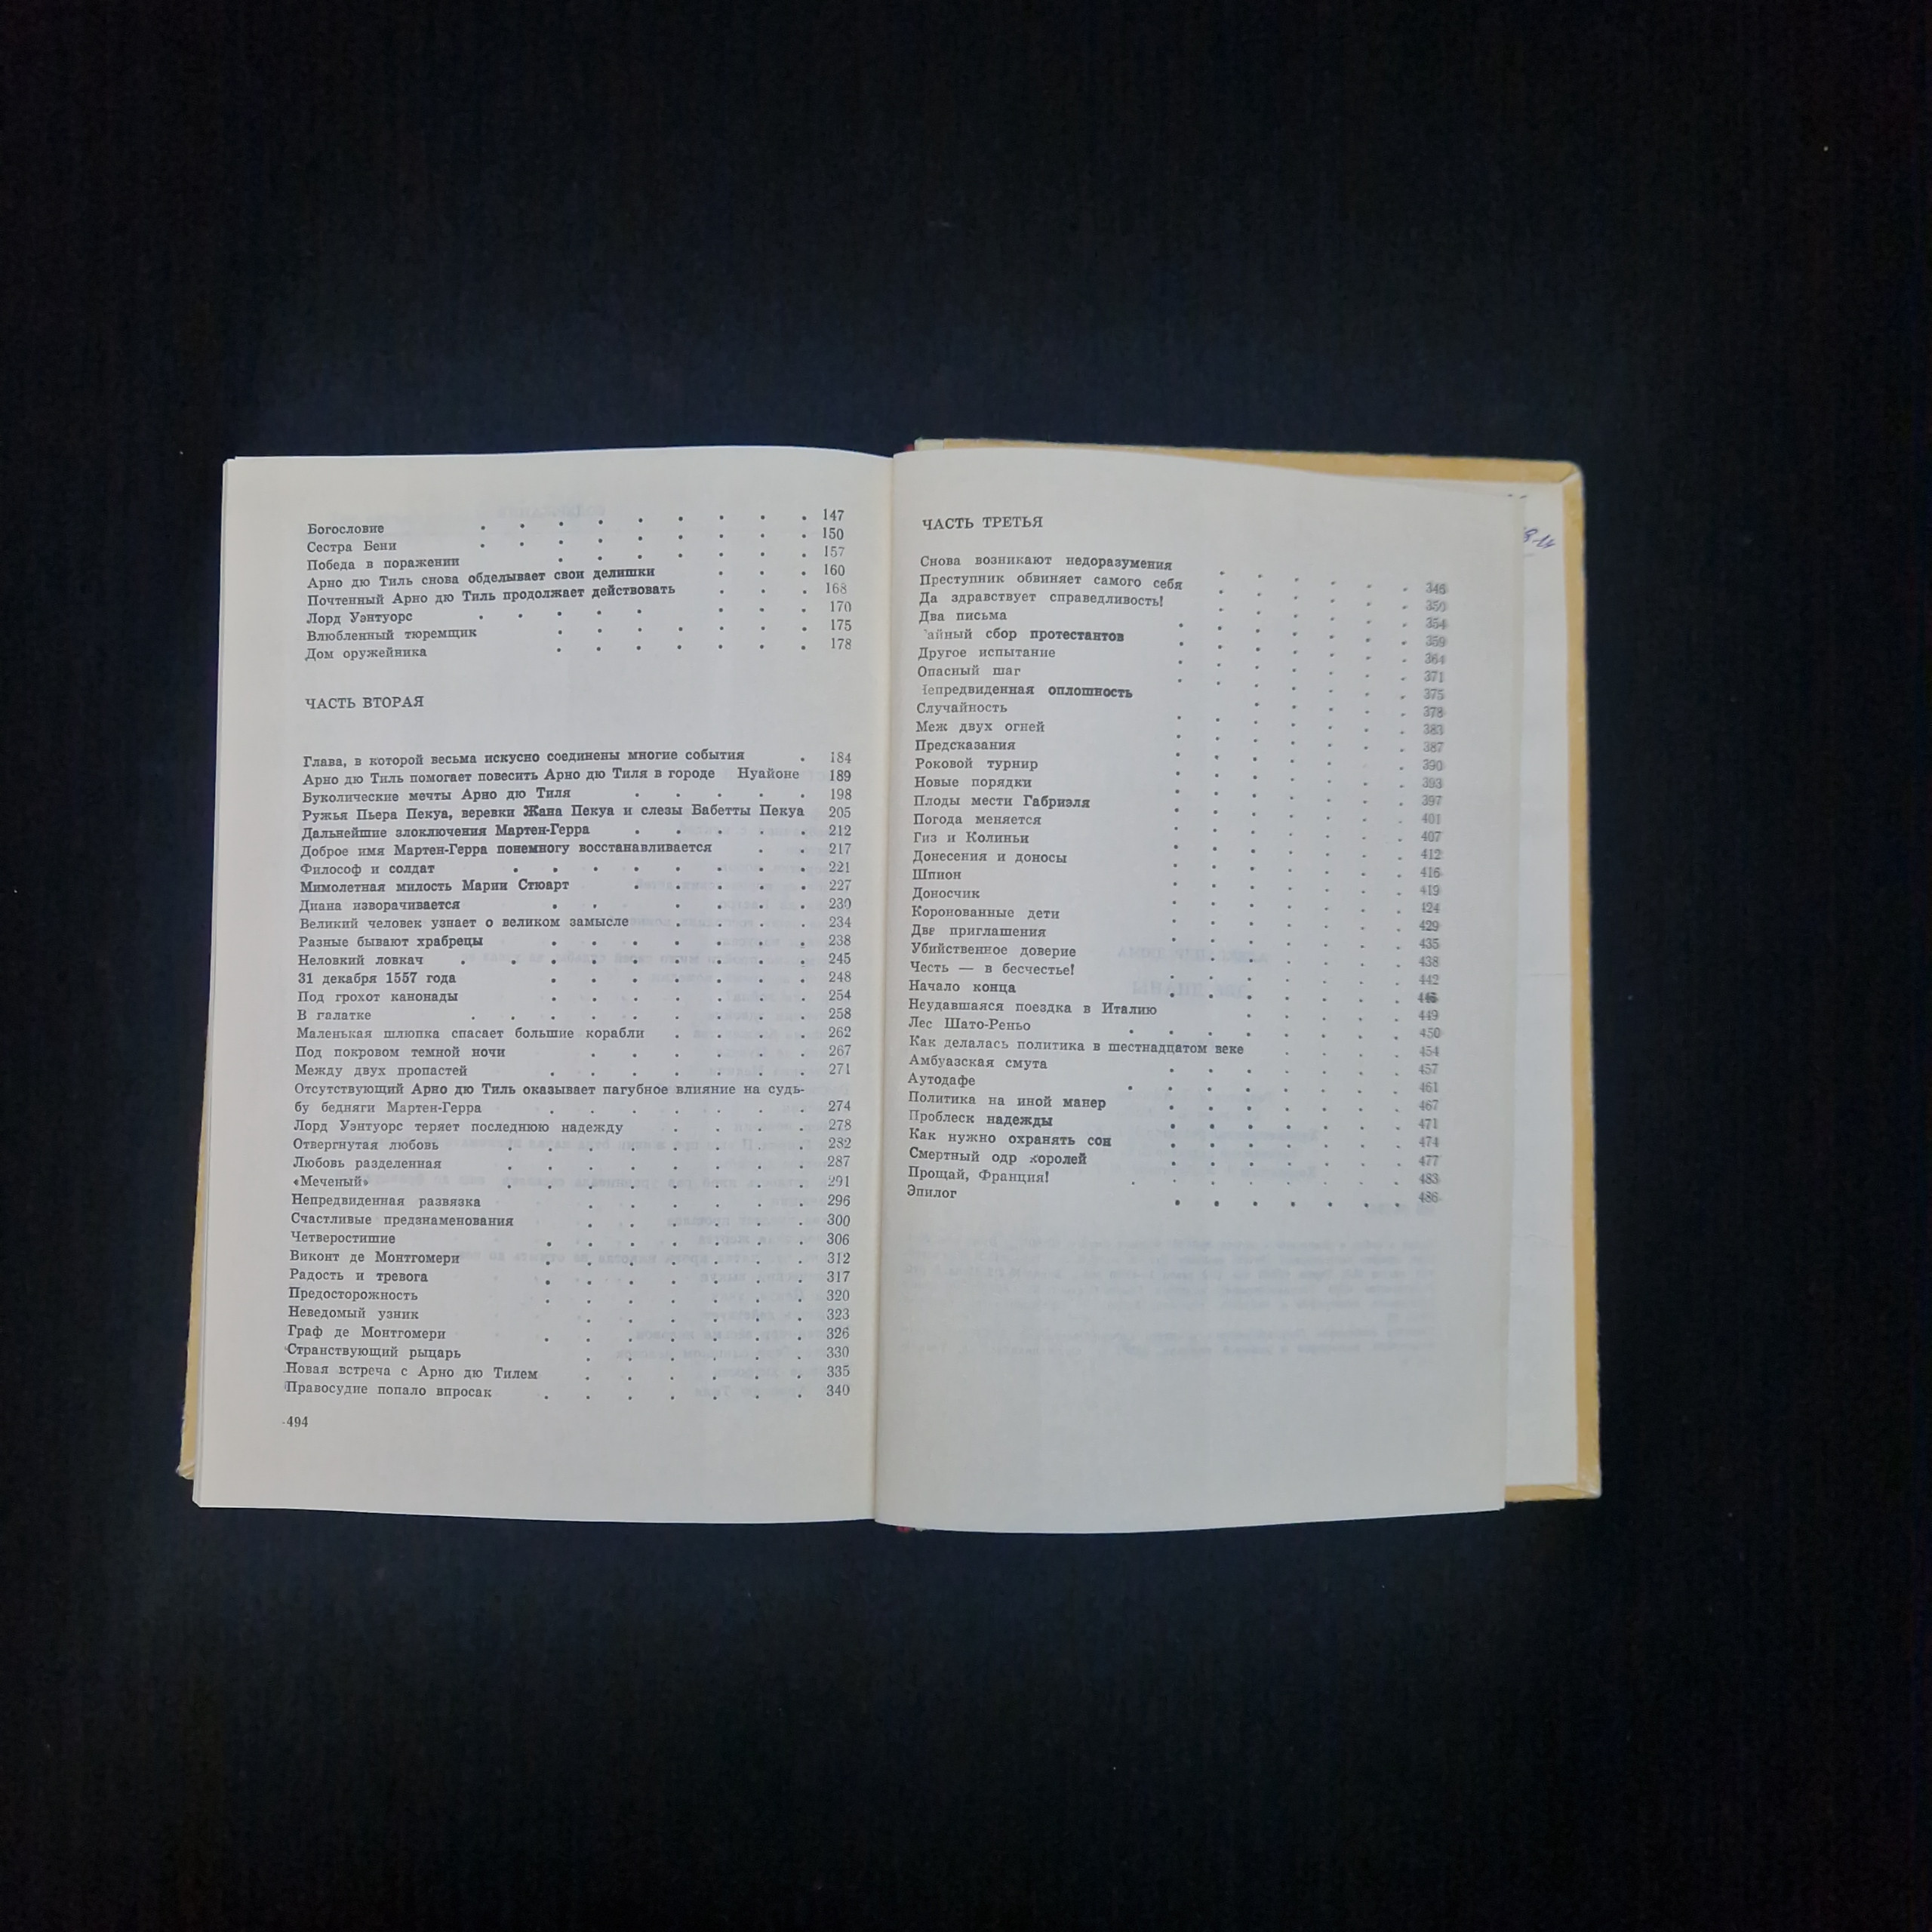 Богословие 147
Сестра Бени 150
Победа в поражении 157
Арно дю Тиль снова обделывает свои делишки 160
Почтенный Арно дю Тиль продолжает действовать 168
Лорд Уэнтуорс 170
Влюбленный тюремщик 175
Дом оружейника 178
ЧАСТЬ ВТОРАЯ
Глава, в которой весьма искусно соединены многие события 184
Арно дю Тиль помогает повесить Арно дю Тиля в городе Нуайоне 189
Буколические мечты Арно дю Тиля 198
Ружья Пьера Пекуа, веревки Жана Пекуа и слезы Бабетты Пекуа 205
Дальнейшие злоключения Мартен-Герра 212
Доброе имя Мартен-Герра понемногу восстанавливается 217
Философ и солдат 221
Мимолетная милость Марии Стюарт 227
Диана изворачивается 230
Великий человек узнает о великом замысле 234
Разные бывают храбрецы 238
Неловкий ловкач 245
31 декабря 1557 года 248
Под грохот канонады 254
В палатке 258
Маленькая шлюпка спасает большие корабли 262
Под покровом темной ночи 267
Между двух пропастей 271
Отсутствующий Арно дю Тиль оказывает пагубное влияние на судь-
бу бедняги Мартен-Герра 274
Лорд Уэнтуорс теряет последнюю надежду 278
Отвергнутая любовь 282
Любовь разделенная 287
«Меченый» 291
Непредвиденная развязка 296
Счастливые предзнаменования 300
Четверостишие 306
Виконт де Монтгомери 312
Радость и тревога 317
Предосторожность 320
Неведомый узник 323
Граф де Монтгомери 326
Странствующий рыцарь 330
Новая встреча с Арно дю Тилем 335
Правосудие попало впросак 340
494
ЧАСТЬ ТРЕТЬЯ
Снова возникают недоразумения 346
Преступник обвиняет самого себя 350
Да здравствует справедливость! 354
Два письма 359
айный сбор протестантов 364
Другое испытание 371
Опасный шаг 375
Непредвиденная оплошность 378
Случайность 383
Меж двух огней 387
Предсказания 390
Роковой турнир 393
Новые порядки 397
Плоды мести Габриэля 401
Погода меняется 407
Гиз и Колиньи 412
Донесения и доносы 416
Шпион 419
Доносчик 424
Коронованные дети 429
Две приглашения 435
Убийственное доверие 438
Честь — в бесчестье! 442
Начало конца 446
Неудавшаяся поездка в Италию 449
Лес Шато-Реньо 450
Как делалась политика в шестнадцатом веке 454
Амбуазская смута 457
Аутодафе 461
Политика на иной манер 467
Проблеск надежды 471
Как нужно охранять сон 474
Смертный одр королей 477
Прощай, Франция! 483
Эпилог 486